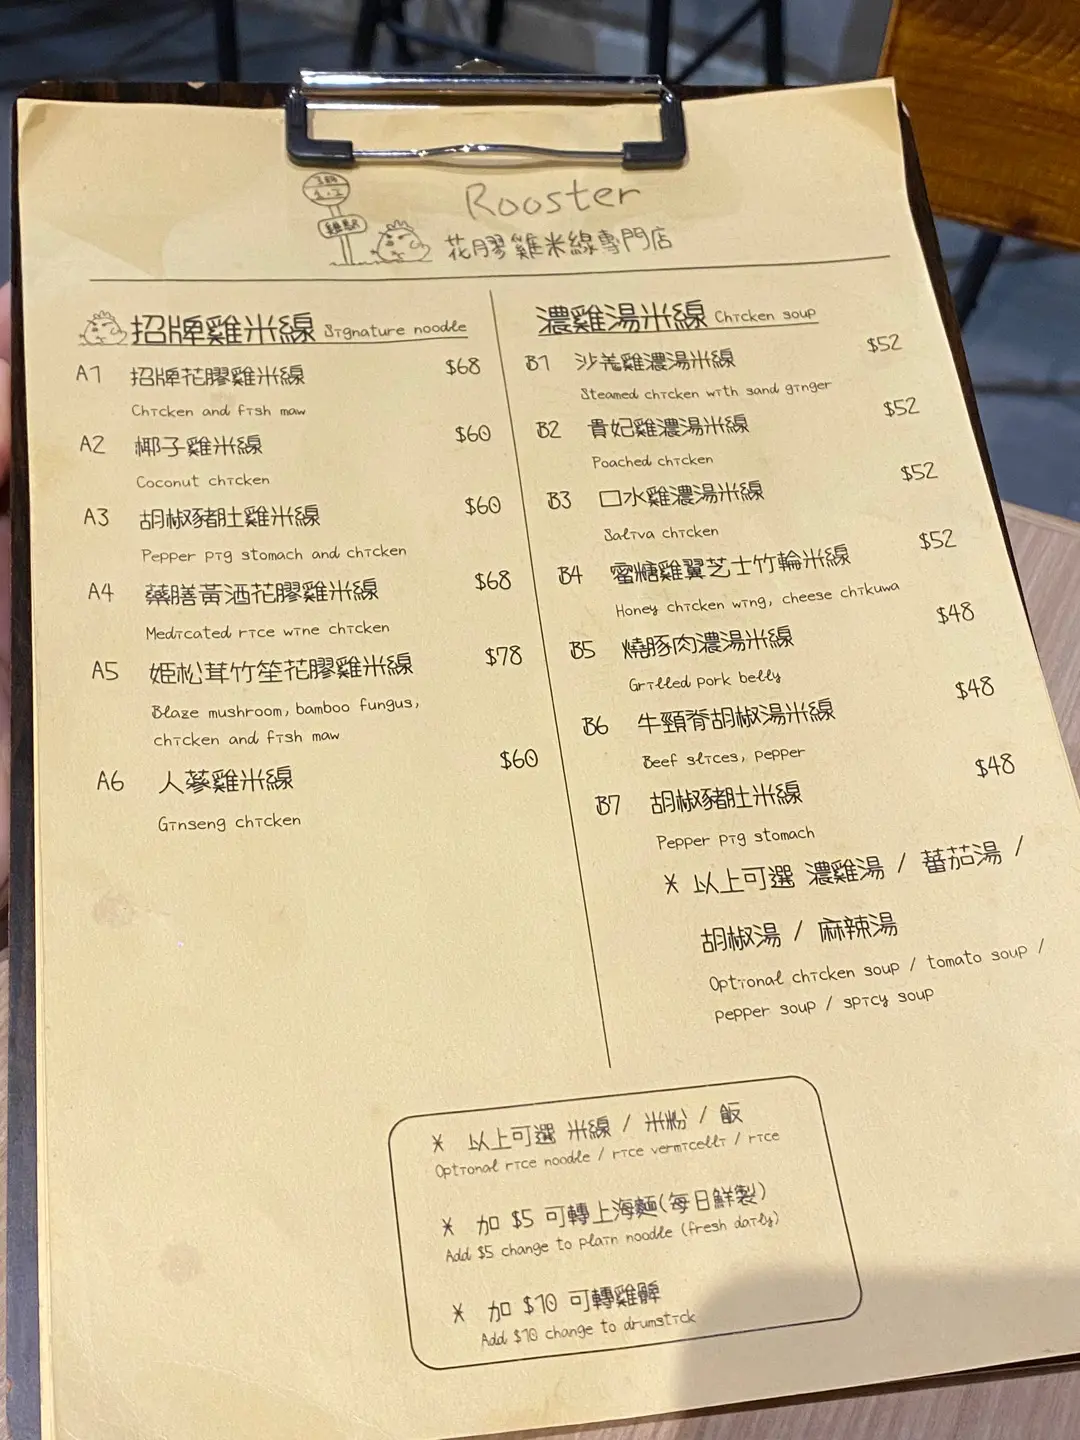 Rooster
花膠雞米線專門店
招牌雞米線 Signature noodle
A1 招牌花膠雞米線 $68
Chicken and fish maw
A2 椰子雞米線 $60
Coconut chicken
A3 胡椒豬肚雞米線 $60
Pepper pig stomach and chicken
A4 藥膳黃酒花膠雞米線 $68
Medicated rice wine chicken
A5 姫松茸竹笙花膠雞米線 $78
Blaze mushroom, bamboo fungus,
chicken and fish maw
A6 人蔘雞米線 $60
Ginseng chicken
濃雞湯米線 Chicken soup
B1 沙羗雞濃湯米線 $52
Steamed chicken with sand ginger
B2 貴妃雞濃湯米線 $52
Poached chicken
B3 口水雞濃湯米線 $52
Saliva chicken
B4 蜜糖雞翼芝士竹輪米線 $52
Honey chicken wing, cheese chikuwa
B5 燒豚肉濃湯米線 $48
Grilled pork belly
B6 牛頸脊胡椒湯米線 $48
Beef slices, pepper
B7 胡椒豬肚米線 $48
Pepper pig stomach
* 以上可選 濃雞湯 / 蕃茄湯 /
胡椒湯 / 麻辣湯
Optional chicken soup / tomato soup /
pepper soup / spicy soup
* 以上可選 米線 / 米粉 / 飯
Optional rice noodle / rice vermicelli / rice
* 加 $5 可轉上海麵(每日鮮製)
Add $5 change to plain noodle (fresh daily)
* 加 $10 可轉雞髀
Add $10 change to drumstick